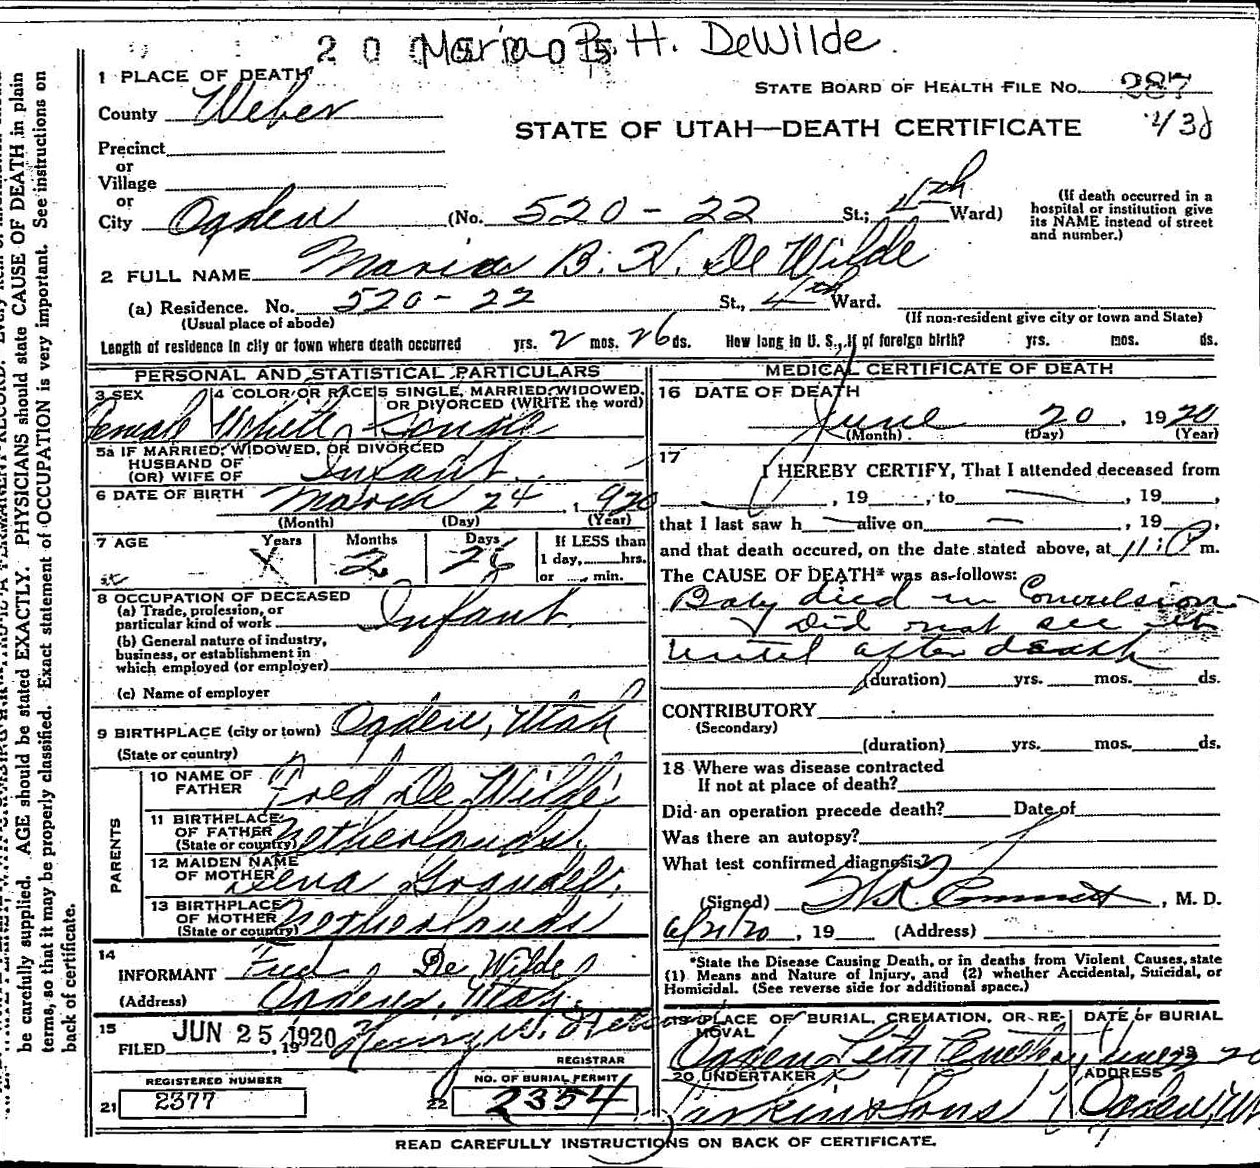 Maria B. H. DeWilde.
1 PLACE OF DEATH
STATE BOARD OF HEALTH FILE No. 287
County Weber
STATE OF UTAH—DEATH CERTIFICATE
Precinct
or
Village
or
City Ogden (No. 520-22 St.; 4th Ward)
(If death occurred in a hospital or institution give its NAME instead of street and number.)
2 FULL NAME Maria B. H. De Wilde
(a) Residence. No. 520-22 St., 4th Ward.
(Usual place of abode) (If non-resident give city or town and State)
Length of residence in city or town where death occurred yrs. 2 mos. 26 ds. How long in U. S., if of foreign birth? yrs. mos. ds.
PERSONAL AND STATISTICAL PARTICULARS
3 SEX 4 COLOR OR RACE 5 SINGLE, MARRIED, WIDOWED, OR DIVORCED (WRITE the word)
Female White Single
5a IF MARRIED, WIDOWED, OR DIVORCED
HUSBAND OF
(OR) WIFE OF Infant.
6 DATE OF BIRTH March 24, 1920
(Month) (Day) (Year)
7 AGE Years Months Days If LESS than
1 day, hrs.
or min.
X 2 26
8 OCCUPATION OF DECEASED
(a) Trade, profession, or
particular kind of work Infant.
(b) General nature of industry,
business, or establishment in
which employed (or employer)
(c) Name of employer
9 BIRTHPLACE (city or town) Ogden, Utah
(State or country)
PARENTS
10 NAME OF
FATHER Fred De Wilde
11 BIRTHPLACE
OF FATHER
(State or country) Netherlands.
12 MAIDEN NAME
OF MOTHER
13 BIRTHPLACE
OF MOTHER
(State or country) Netherlands
14
INFORMANT Fred De Wilde
(Address) Ogden, Utah.
15
FILED JUN 25 1920, 19 Henry
REGISTRAR
REGISTERED NUMBER
21 2377
NO. OF BURIAL PERMIT
22 2354
MEDICAL CERTIFICATE OF DEATH
16 DATE OF DEATH
June 20, 1920
(Month) (Day) (Year)
17
I HEREBY CERTIFY, That I attended deceased from
, 19 , to , 19 ,
that I last saw h alive on , 19 ,
and that death occured, on the date stated above, at 11: P m.
The CAUSE OF DEATH* was as follows:
Baby died in Convulsion
Did not see it
until after death
(duration) yrs. mos. ds.
CONTRIBUTORY
(Secondary)
(duration) yrs. mos. ds.
18 Where was disease contracted
If not at place of death?
Did an operation precede death? Date of
Was there an autopsy?
What test confirmed diagnosis?
(Signed) , M. D.
6/21/20, 19 (Address)
*State the Disease Causing Death, or in deaths from Violent Causes, state
(1) Means and Nature of Injury, and (2) whether Accidental, Suicidal, or
Homicidal. (See reverse side for additional space.)
19 PLACE OF BURIAL, CREMATION, OR RE-
MOVAL
DATE OF BURIAL
Ogden City June 20
20 UNDERTAKER ADDRESS
Larkin & Sons Ogden, Ut
READ CAREFULLY INSTRUCTIONS ON BACK OF CERTIFICATE.
be carefully supplied. AGE should be stated EXACTLY. PHYSICIANS should state CAUSE OF DEATH in plain
terms, so that it may be properly classified. Exact statement of OCCUPATION is very important. See instructions on
back of certificate.